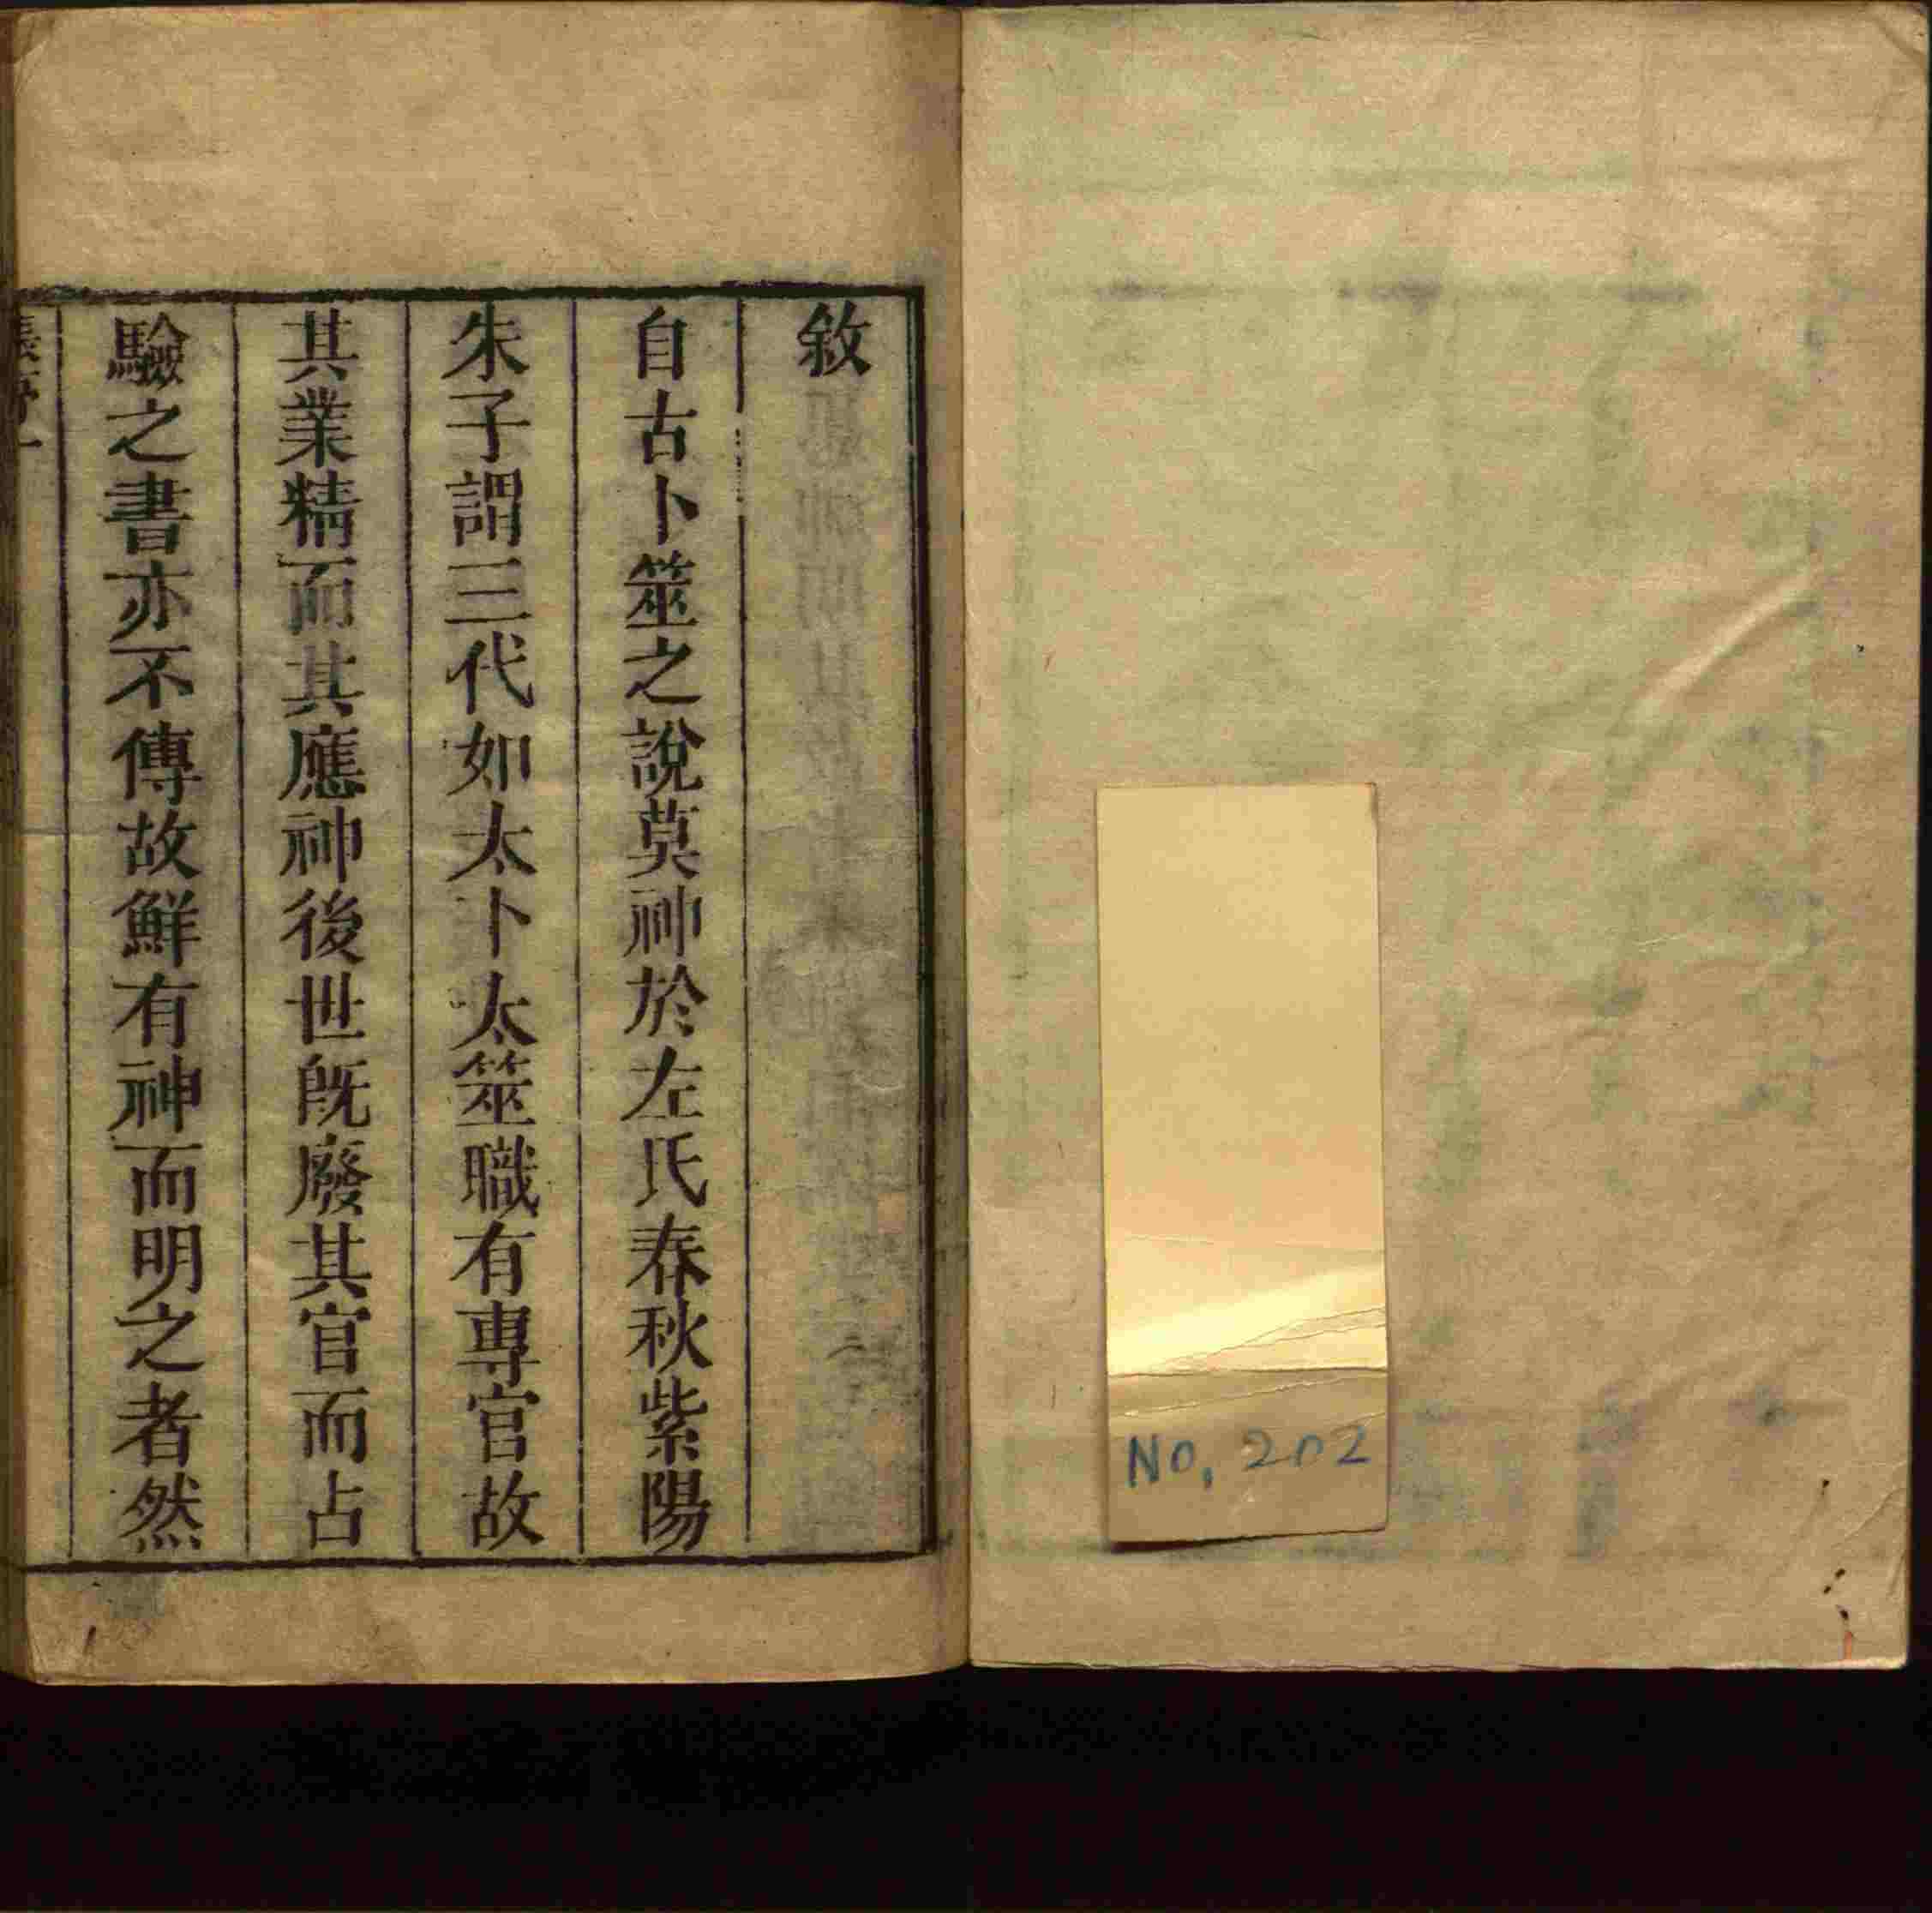 敘
自古卜筮之說莫神於左氏春秋紫陽
朱子謂三代如太卜太筮職有專官故
其業精而其應神後世旣廢其官而占
驗之書亦不傳故鮮有神而明之者然
No. 202